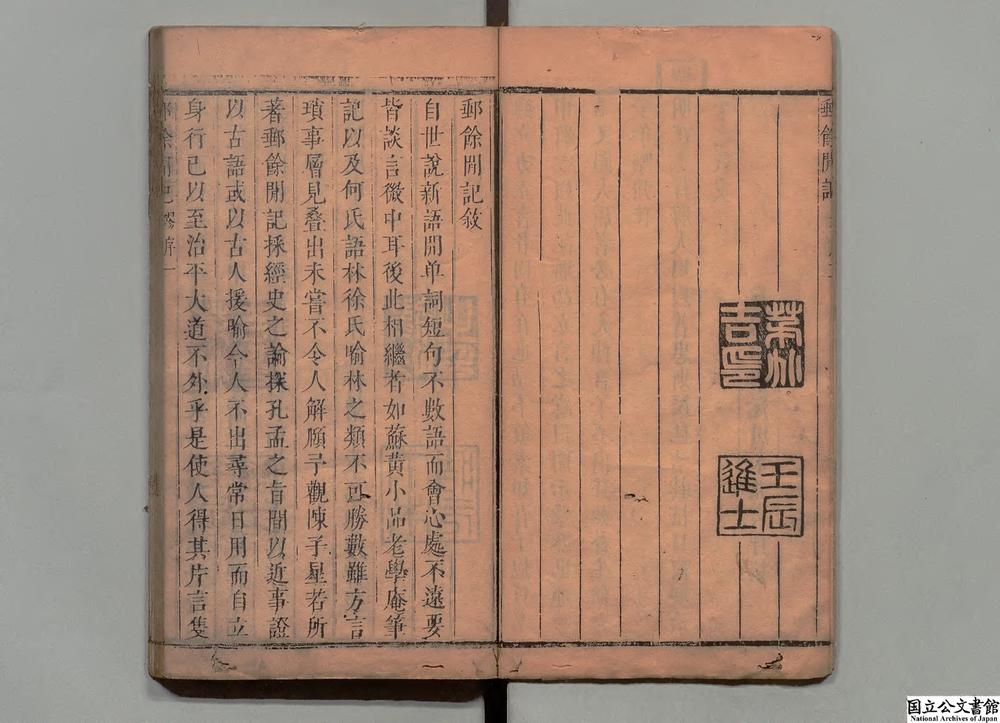 郵餘閒記
壬辰
進士
郵餘閒記敘
自世說新語開单詞短句不數語而會心處不遠要
皆談言微中耳後此相繼者如蘇黃小品老學庵筆
記以及何氏語林徐氏喻林之類不可勝數雖方言
瑣事層見叠出未嘗不令人解頤予觀陳子星若所
著郵餘閒記採經史之論探孔孟之旨間以近事證
以古語或以古人援喻今人不出尋常日用而自立
身行已以至治平大道不外乎是使人得其片言隻
序一
国立公文書館
National Archives of Japan